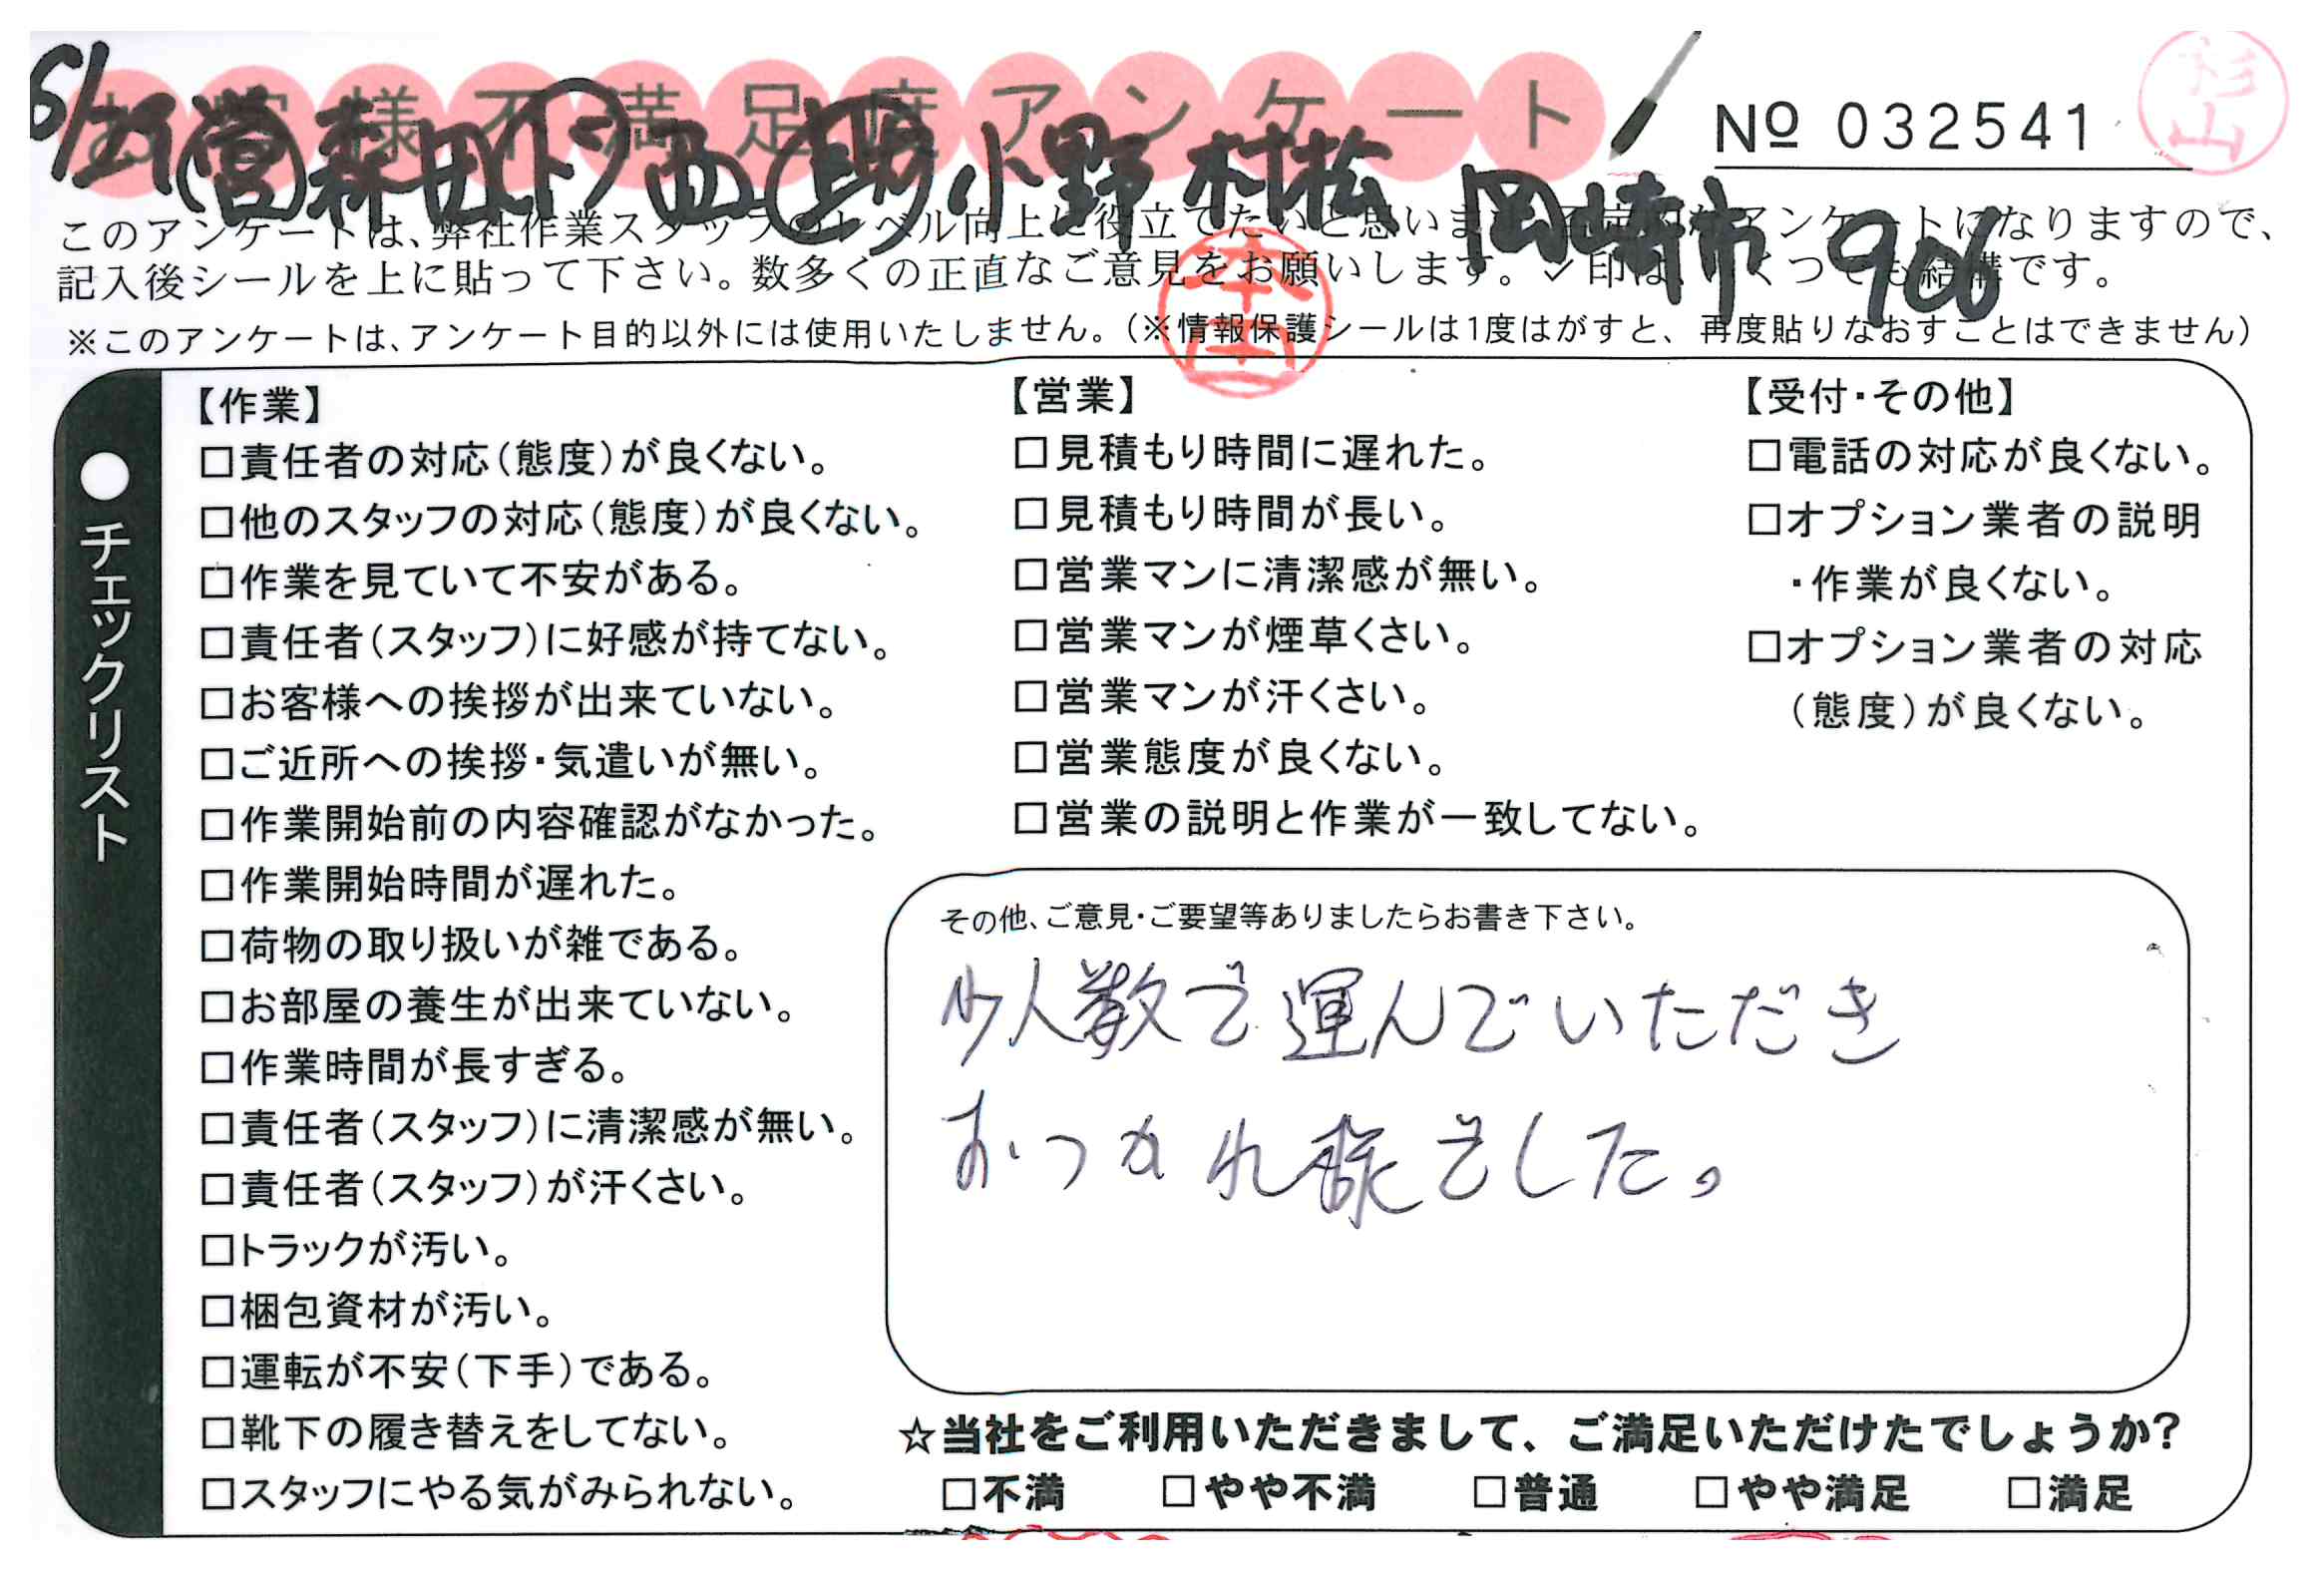 お客様不満足度アンケート
No 032541
杉山
6/29 (営)森 (下)西 (助)小野 村松 岡崎市 906
このアンケートは、弊社作業スタッフのレベル向上に役立てたいと思います。アンケートになりますので、
記入後シールを上に貼って下さい。数多くの正直なご意見をお願いします。✓印は、いくつでも結構です。
※このアンケートは、アンケート目的以外には使用いたしません。(※情報保護シールは1度はがすと、再度貼りなおすことはできません)
●チェックリスト
【作業】
□責任者の対応(態度)が良くない。
□他のスタッフの対応(態度)が良くない。
□作業を見ていて不安がある。
□責任者(スタッフ)に好感が持てない。
□お客様への挨拶が出来ていない。
□ご近所への挨拶・気遣いが無い。
□作業開始前の内容確認がなかった。
□作業開始時間が遅れた。
□荷物の取り扱いが雑である。
□お部屋の養生が出来ていない。
□作業時間が長すぎる。
□責任者(スタッフ)に清潔感が無い。
□責任者(スタッフ)が汗くさい。
□トラックが汚い。
□梱包資材が汚い。
□運転が不安(下手)である。
□靴下の履き替えをしてない。
□スタッフにやる気がみられない。
【営業】
□見積もり時間に遅れた。
□見積もり時間が長い。
□営業マンに清潔感が無い。
□営業マンが煙草くさい。
□営業マンが汗くさい。
□営業態度が良くない。
□営業の説明と作業が一致してない。
【受付・その他】
□電話の対応が良くない。
□オプション業者の説明
・作業が良くない。
□オプション業者の対応
(態度)が良くない。
その他、ご意見・ご要望等ありましたらお書き下さい。
少人数で運んでいただき
おつかれ様でした。
☆当社をご利用いただきまして、ご満足いただけたでしょうか?
□不満 □やや不満 □普通 □やや満足 □満足